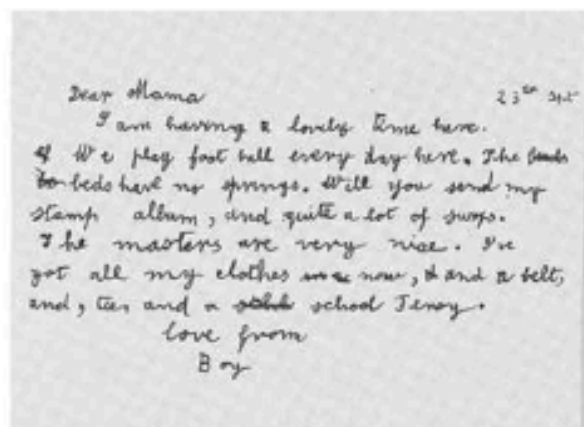 Dear Mama 23rd Sept
I am having a lovely time here.
We play foot ball every day here. The
beds have no springs. Will you send my
stamp album, and quite a lot of swops.
The masters are very nice. I've
got all my clothes now, and a belt,
and, ties and a school Jersy.
love from
Boy